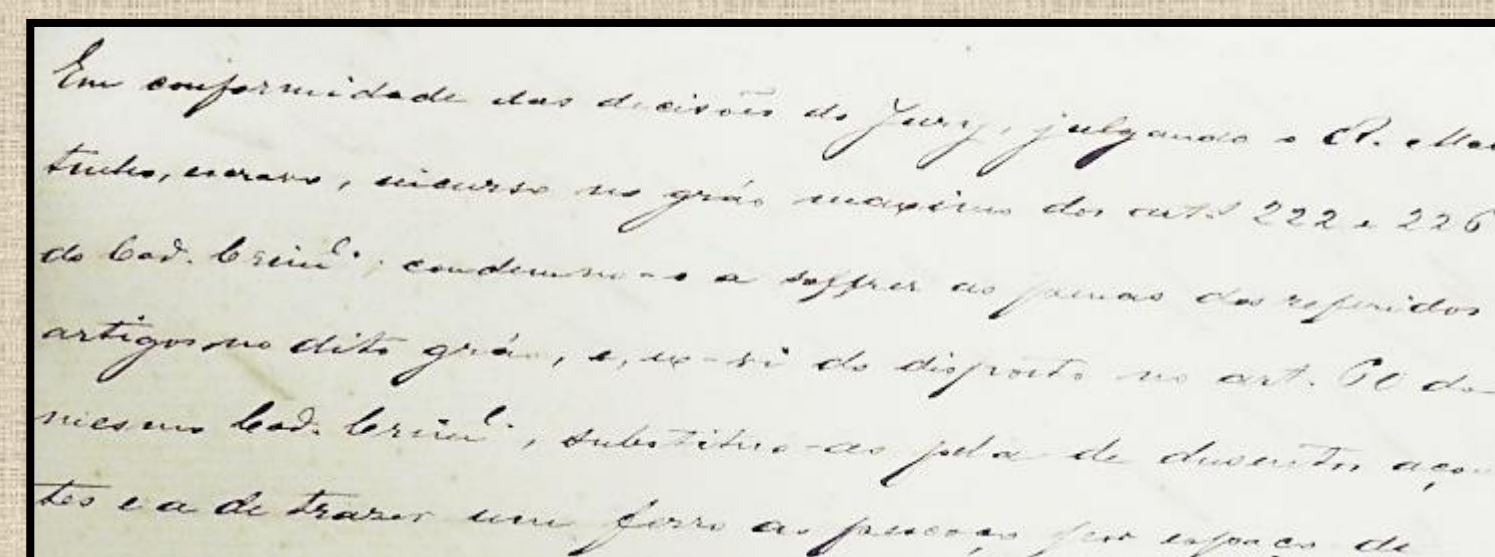 Em conformidade das decisões do Jury, julgando o R. Mar
tinho, escravo, incurso no gráo maximo dos art.s 222 e 226
do Cod. Crim.l, condemno-o a soffrer as penas dos referidos
artigos no dito gráo, e, ex-vi do disposto no art. 60 do
mesmo Cod. Crim.l, substituo-as pela de dusentos açou
tes e a de trazer um ferro ao pescoço por espaço de